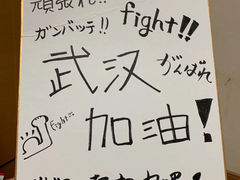 頑張れ!!
ガンバッテ!!
fight!!
武汉
がんばれ
Fight!!
加油!